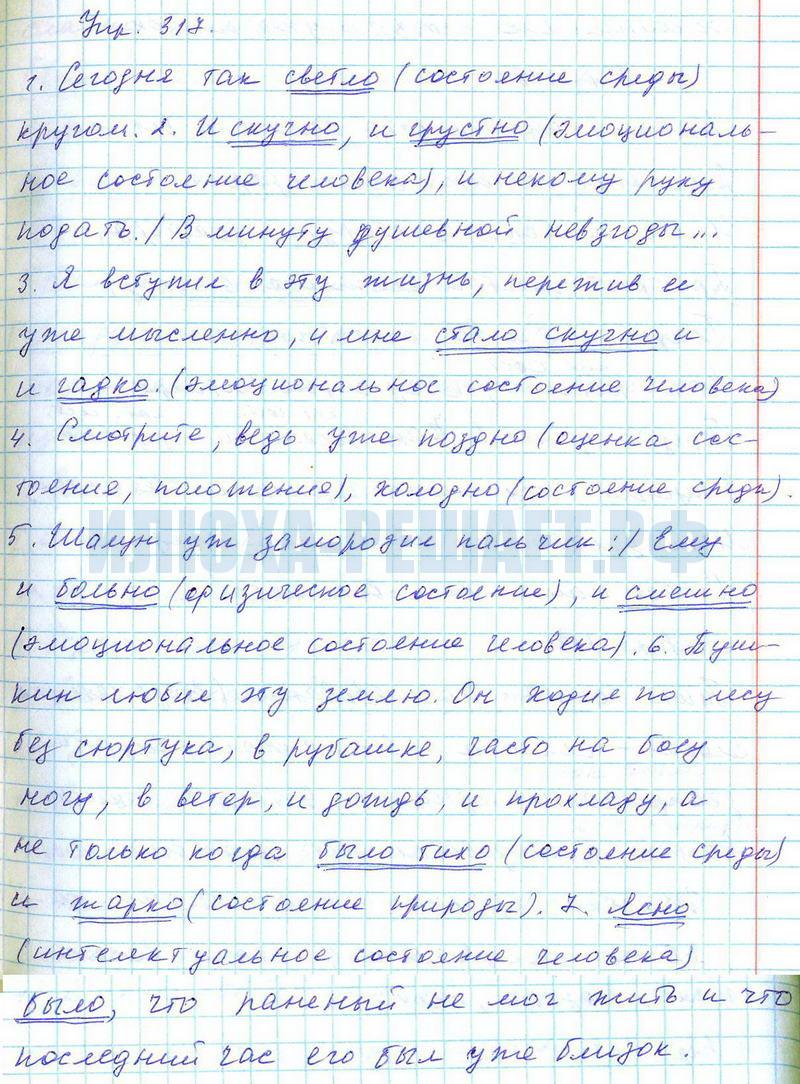 Упр. 317.
1. Сегодня так светло (состояние среды)
кругом. 2. И скучно, и грустно (эмоциональ-
ное состояние человека), и некому руку
подать./ В минуту душевной невзгоды...
3. Я вступил в эту жизнь, пережив ее
уже мысленно, и мне стало скучно и
и гадко. (эмоциональное состояние человека)
4. Смотрите, ведь уже поздно (оценка сос-
тояние, положения), холодно (состояние среды).
ИЛЮХА-РЕШАЕТ.РФ
5. Шалун уж заморозил пальчик:/ Ему
и больно (физическое состояние), и смешно
(эмоциональное состояние человека). 6. Пуш-
кин любил эту землю. Он ходил по лесу
без сюртука, в рубашке, часто на босу
ногу, в ветер, и дождь, и прохладу, а
не только когда было тихо (состояние среды)
и жарко (состояние природы). 7. Ясно
(интелектуальное состояние человека)
было, что раненый не мог жить и что
последний час его был уже близок.